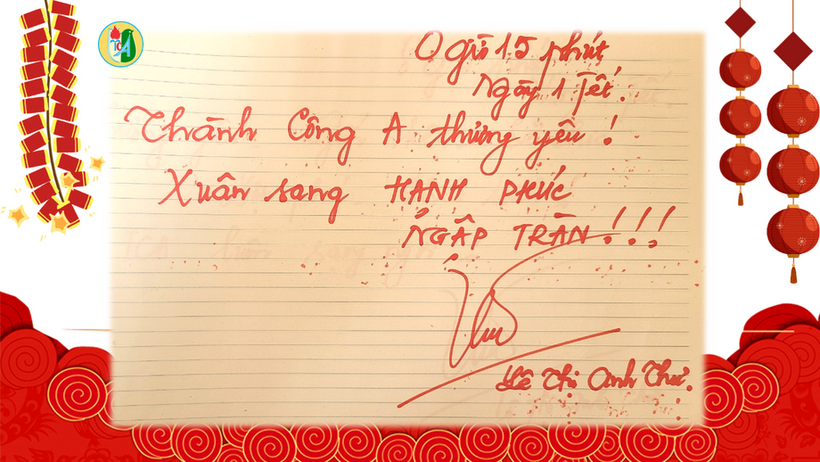 TCA
0 giờ 15 phút
Ngày 1 Tết.
Thành Công A thương yêu !
Xuân sang HẠNH PHÚC
NGẬP TRÀN !!!
Thư
Lê Thị Anh Thư.